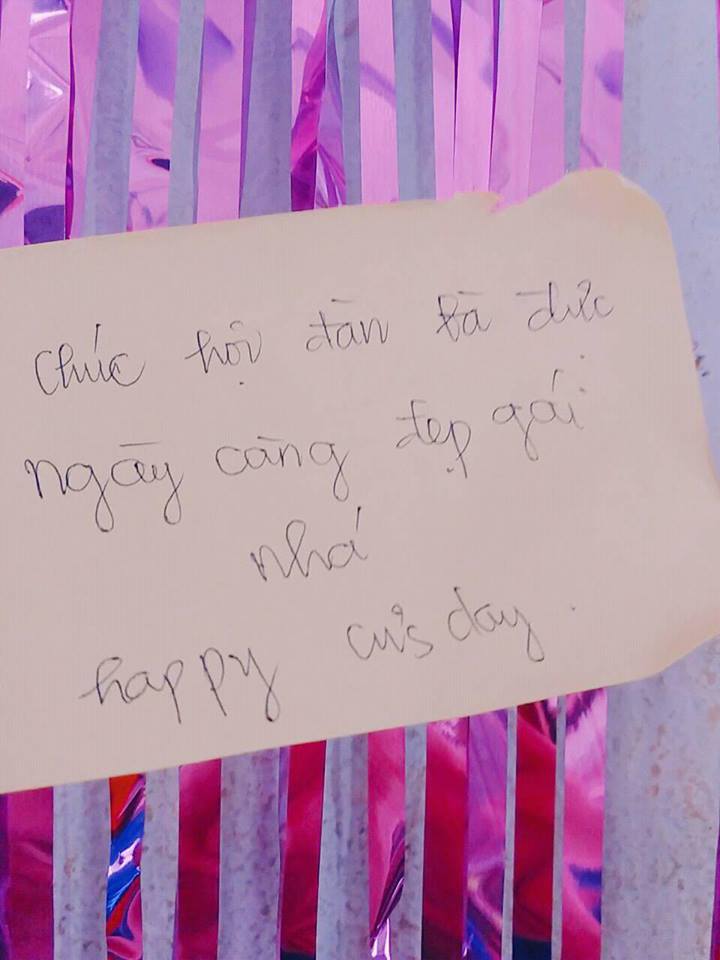 Chúc hội đàn bà đức
ngày càng đẹp gái
nhá
happy cu's day.